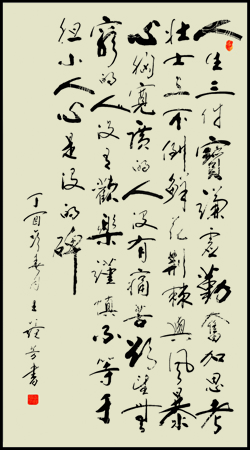 人生三付寶謙虛勤奮加思考
壯士不倒鮮花荆棘與風暴
心胸寬廣的人沒有痛苦欲望無
窮的人沒有歡樂謹慎不等于
胆小人心是没的碑
丁酉春月王芳書